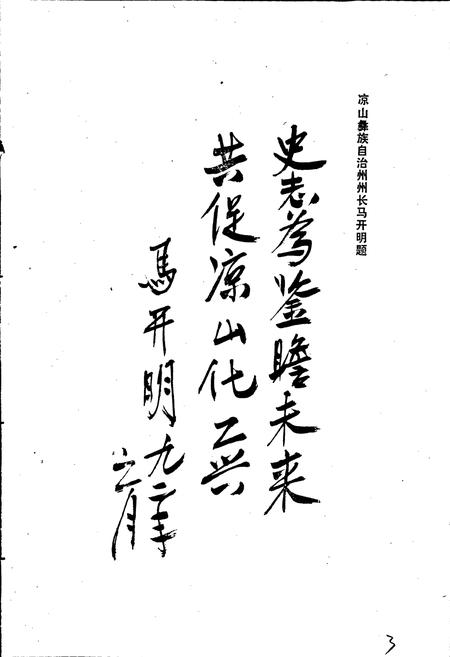 凉山彝族自治州州长马开明题
史志為鉴瞻未来
共促凉山化工兴
馬开明九二年
六月
3